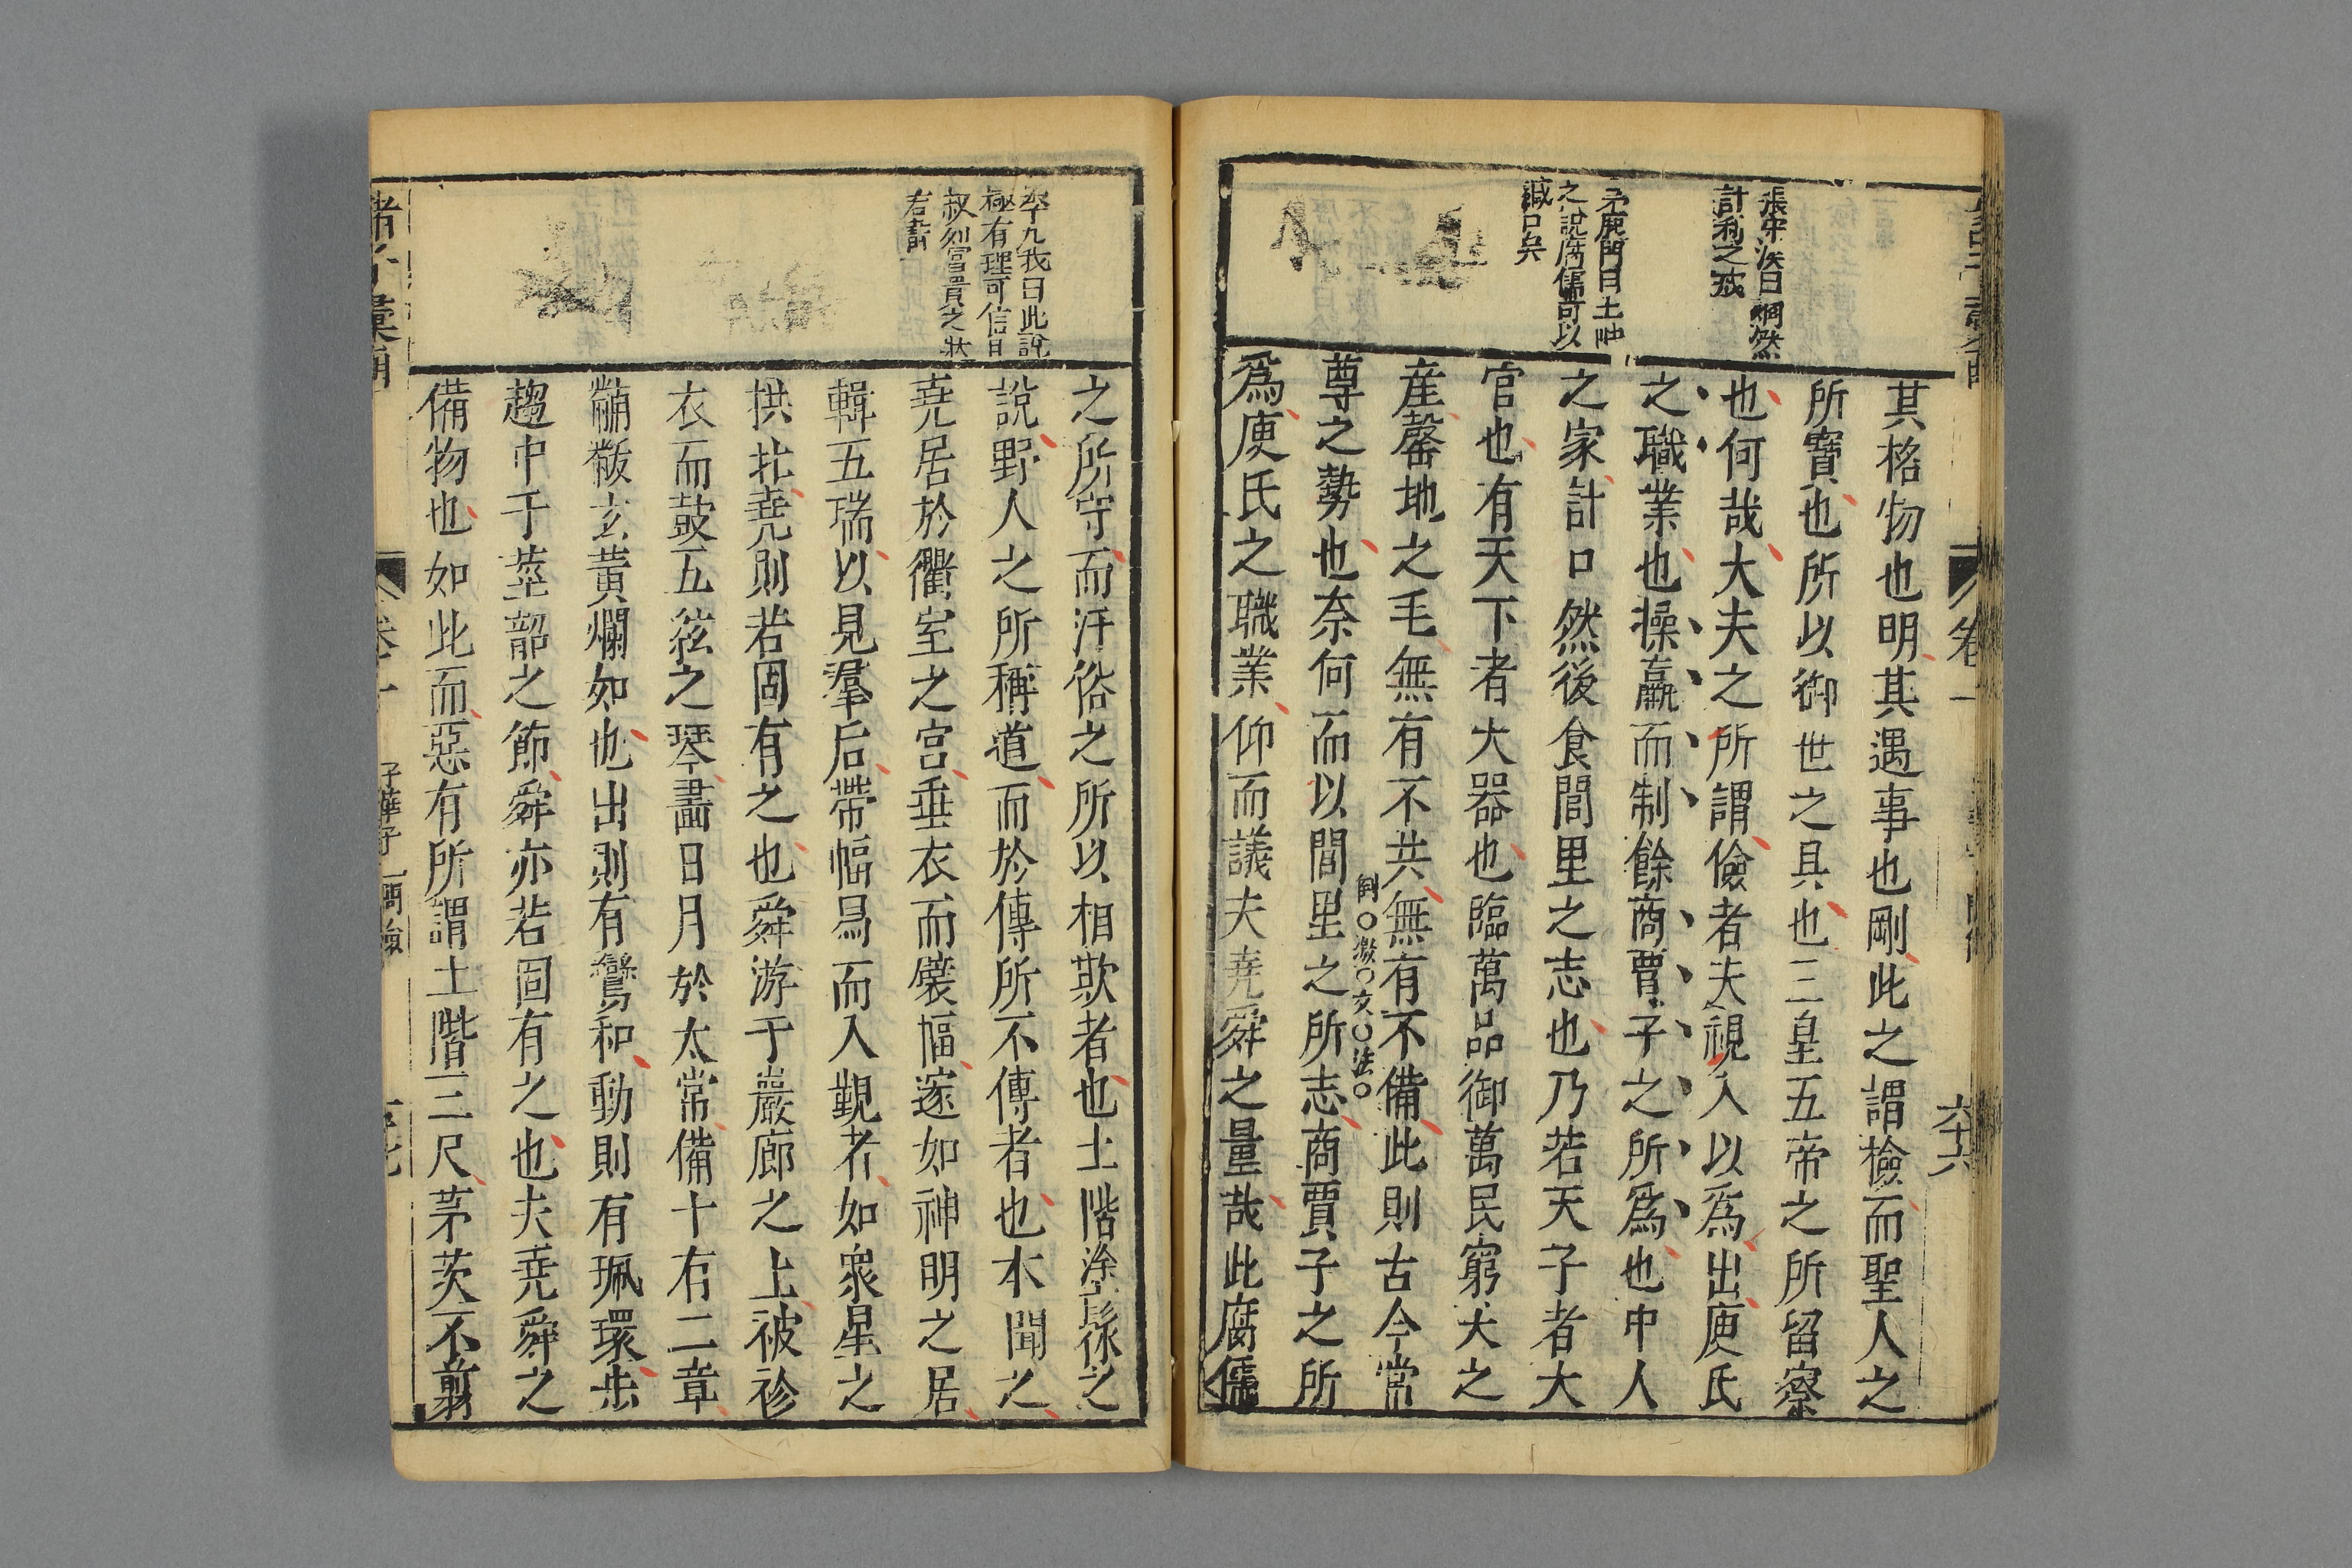 張
洪曰烱然
計利之
茅鹿門曰土
之說腐儒可以
緘口矣
其格物也明其遇事也剛此之謂檢而聖人之
所寶也所以御世之具也三皇五帝之所留察
也何哉大夫之所謂儉者夫視入以爲出庾氏
之職業也操贏而制餘商賈子之所爲也中人
之家計口然後食閭里之志也乃若天子者大
官也有天下者大器也臨萬品御萬民窮天之
産罄地之毛無有不共無有不備此則古今常
尊之勢也奈何而以閭里之所志商賈子之所
文法
爲庾氏之職業仰而議夫堯舜之量哉此腐儒
卷一
六十六
李九我曰此說
極有理可信
叙列富貴之狀
若畫
之所守而汙俗之所以相欺者也土階塗髹之
說野人之所稱道而於傳所不傳者也木聞之
堯居於衢室之宮垂衣而襞幅邃如神明之居
輯五瑞以見羣后帶幅舄而入覲者如衆星之
拱北堯則若固有之也舜游于巖廊之上被袗
衣而鼓五絃之琴畫日月於太常備十有二章
黼黻玄黃爛如也出則有鸞和動則有珮環步
趨中于莖韶之節舜亦若固有之也夫堯舜之
備物也如此而惡有所謂土階三尺茅茨不翦
諸子彙函
卷十
子華子